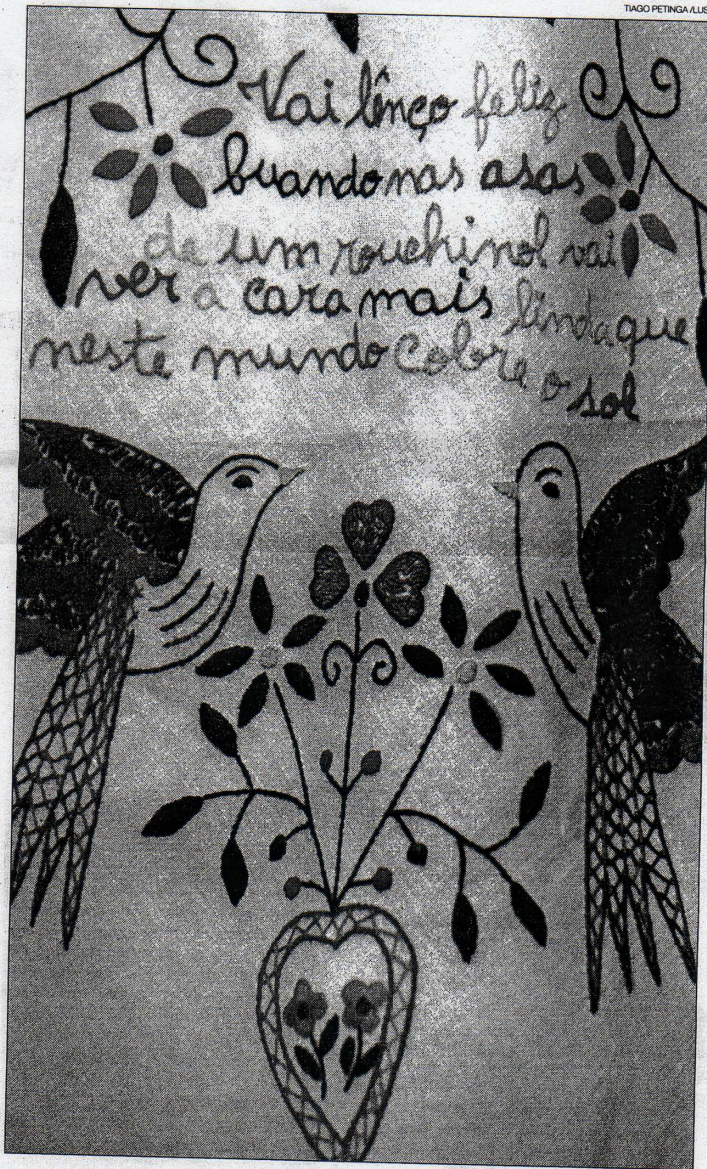 TIAGO PETINGA /LUS
Vai lênço feliz
buando nas asas
de um rouchinol vai
ver a cara mais linda que
neste mundo cobre o
sol